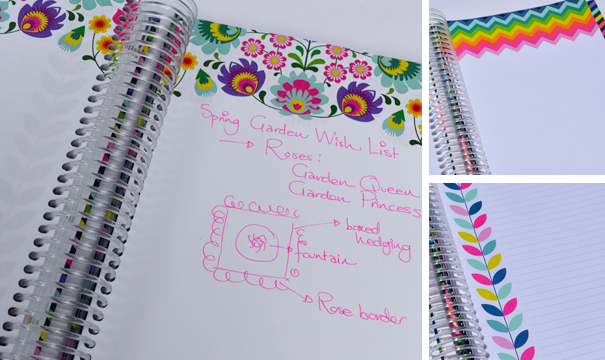 Spring Garden Wish List
→ Roses:
Garden Queen
Garden Princess
boxed
hedging
fountain
Rose border